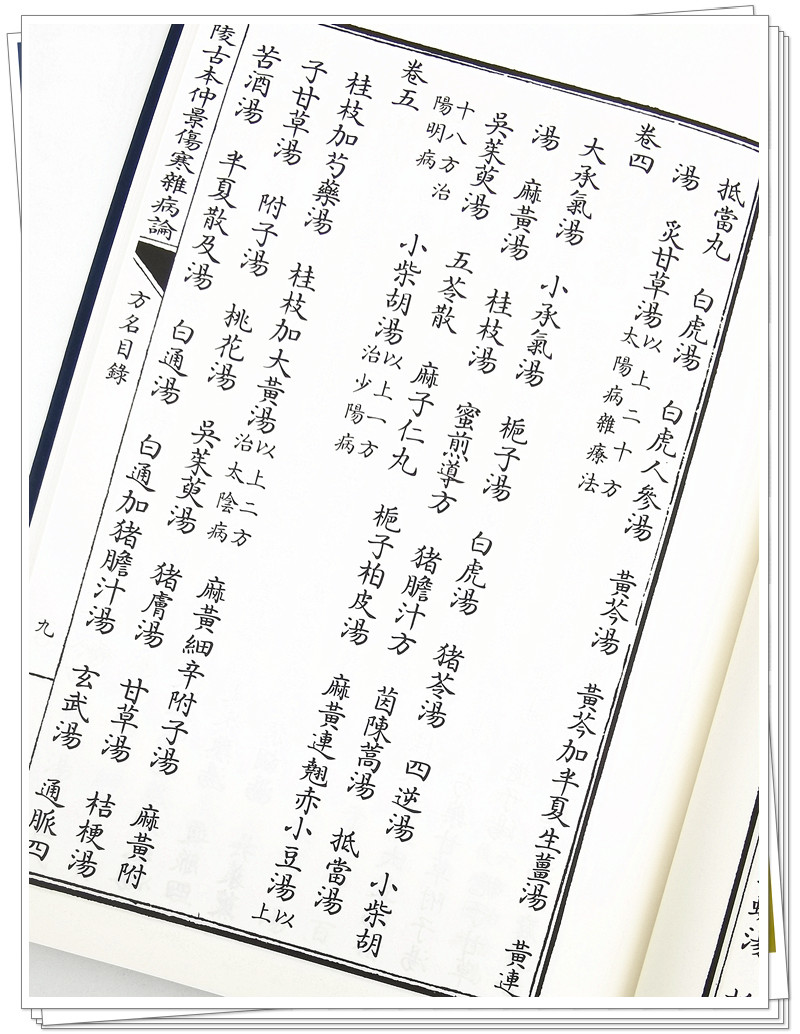 抵當丸 白虎湯 白虎人參湯 黃芩湯 黃芩加半夏生薑湯 黃連
湯 炙甘草湯 以上二十方
太陽病雜療法
卷四
大承氣湯 小承氣湯 梔子湯 白虎湯 豬苓湯 四逆湯 小柴胡
湯 麻黃湯 桂枝湯 蜜煎導方 豬膽汁方 茵陳蒿湯 抵當湯
吳茱萸湯 五苓散 麻子仁丸 梔子柏皮湯 麻黃連翹赤小豆湯 以上
十八方治
陽明病
卷五
小柴胡湯 以上一方
治少陽病
桂枝加芍藥湯 桂枝加大黃湯 以上二方
治太陰病
麻黃細辛附子湯 麻黃附
子甘草湯 附子湯 桃花湯 吳茱萸湯 豬膚湯 甘草湯 桔梗湯
苦酒湯 半夏散及湯 白通湯 白通加豬膽汁湯 玄武湯 通脈四
陵古本仲景傷寒雜病論
方名目錄
九